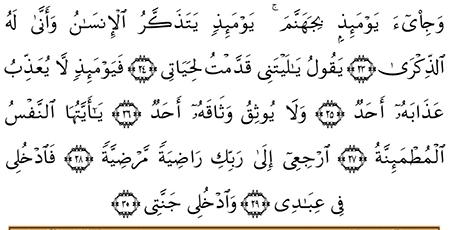 وَجِا۟ىٓءَ يَوْمَئِذٍۭ بِجَهَنَّمَ ۚ يَوْمَئِذٍ يَتَذَكَّرُ ٱلْإِنسَـٰنُ وَأَنَّىٰ لَهُ
ٱلذِّكْرَىٰ ﴿٢٣﴾ يَقُولُ يَـٰلَيْتَنِى قَدَّمْتُ لِحَيَاتِى ﴿٢٤﴾ فَيَوْمَئِذٍ لَّا يُعَذِّبُ
عَذَابَهُۥٓ أَحَدٌ ﴿٢٥﴾ وَلَا يُوثِقُ وَثَاقَهُۥٓ أَحَدٌ ﴿٢٦﴾ يَـٰٓأَيَّتُهَا ٱلنَّفْسُ
ٱلْمُطْمَئِنَّةُ ﴿٢٧﴾ ٱرْجِعِىٓ إِلَىٰ رَبِّكِ رَاضِيَةً مَّرْضِيَّةً ﴿٢٨﴾ فَٱدْخُلِى
فِى عِبَـٰدِى ﴿٢٩﴾ وَٱدْخُلِى جَنَّتِى ﴿٣٠﴾